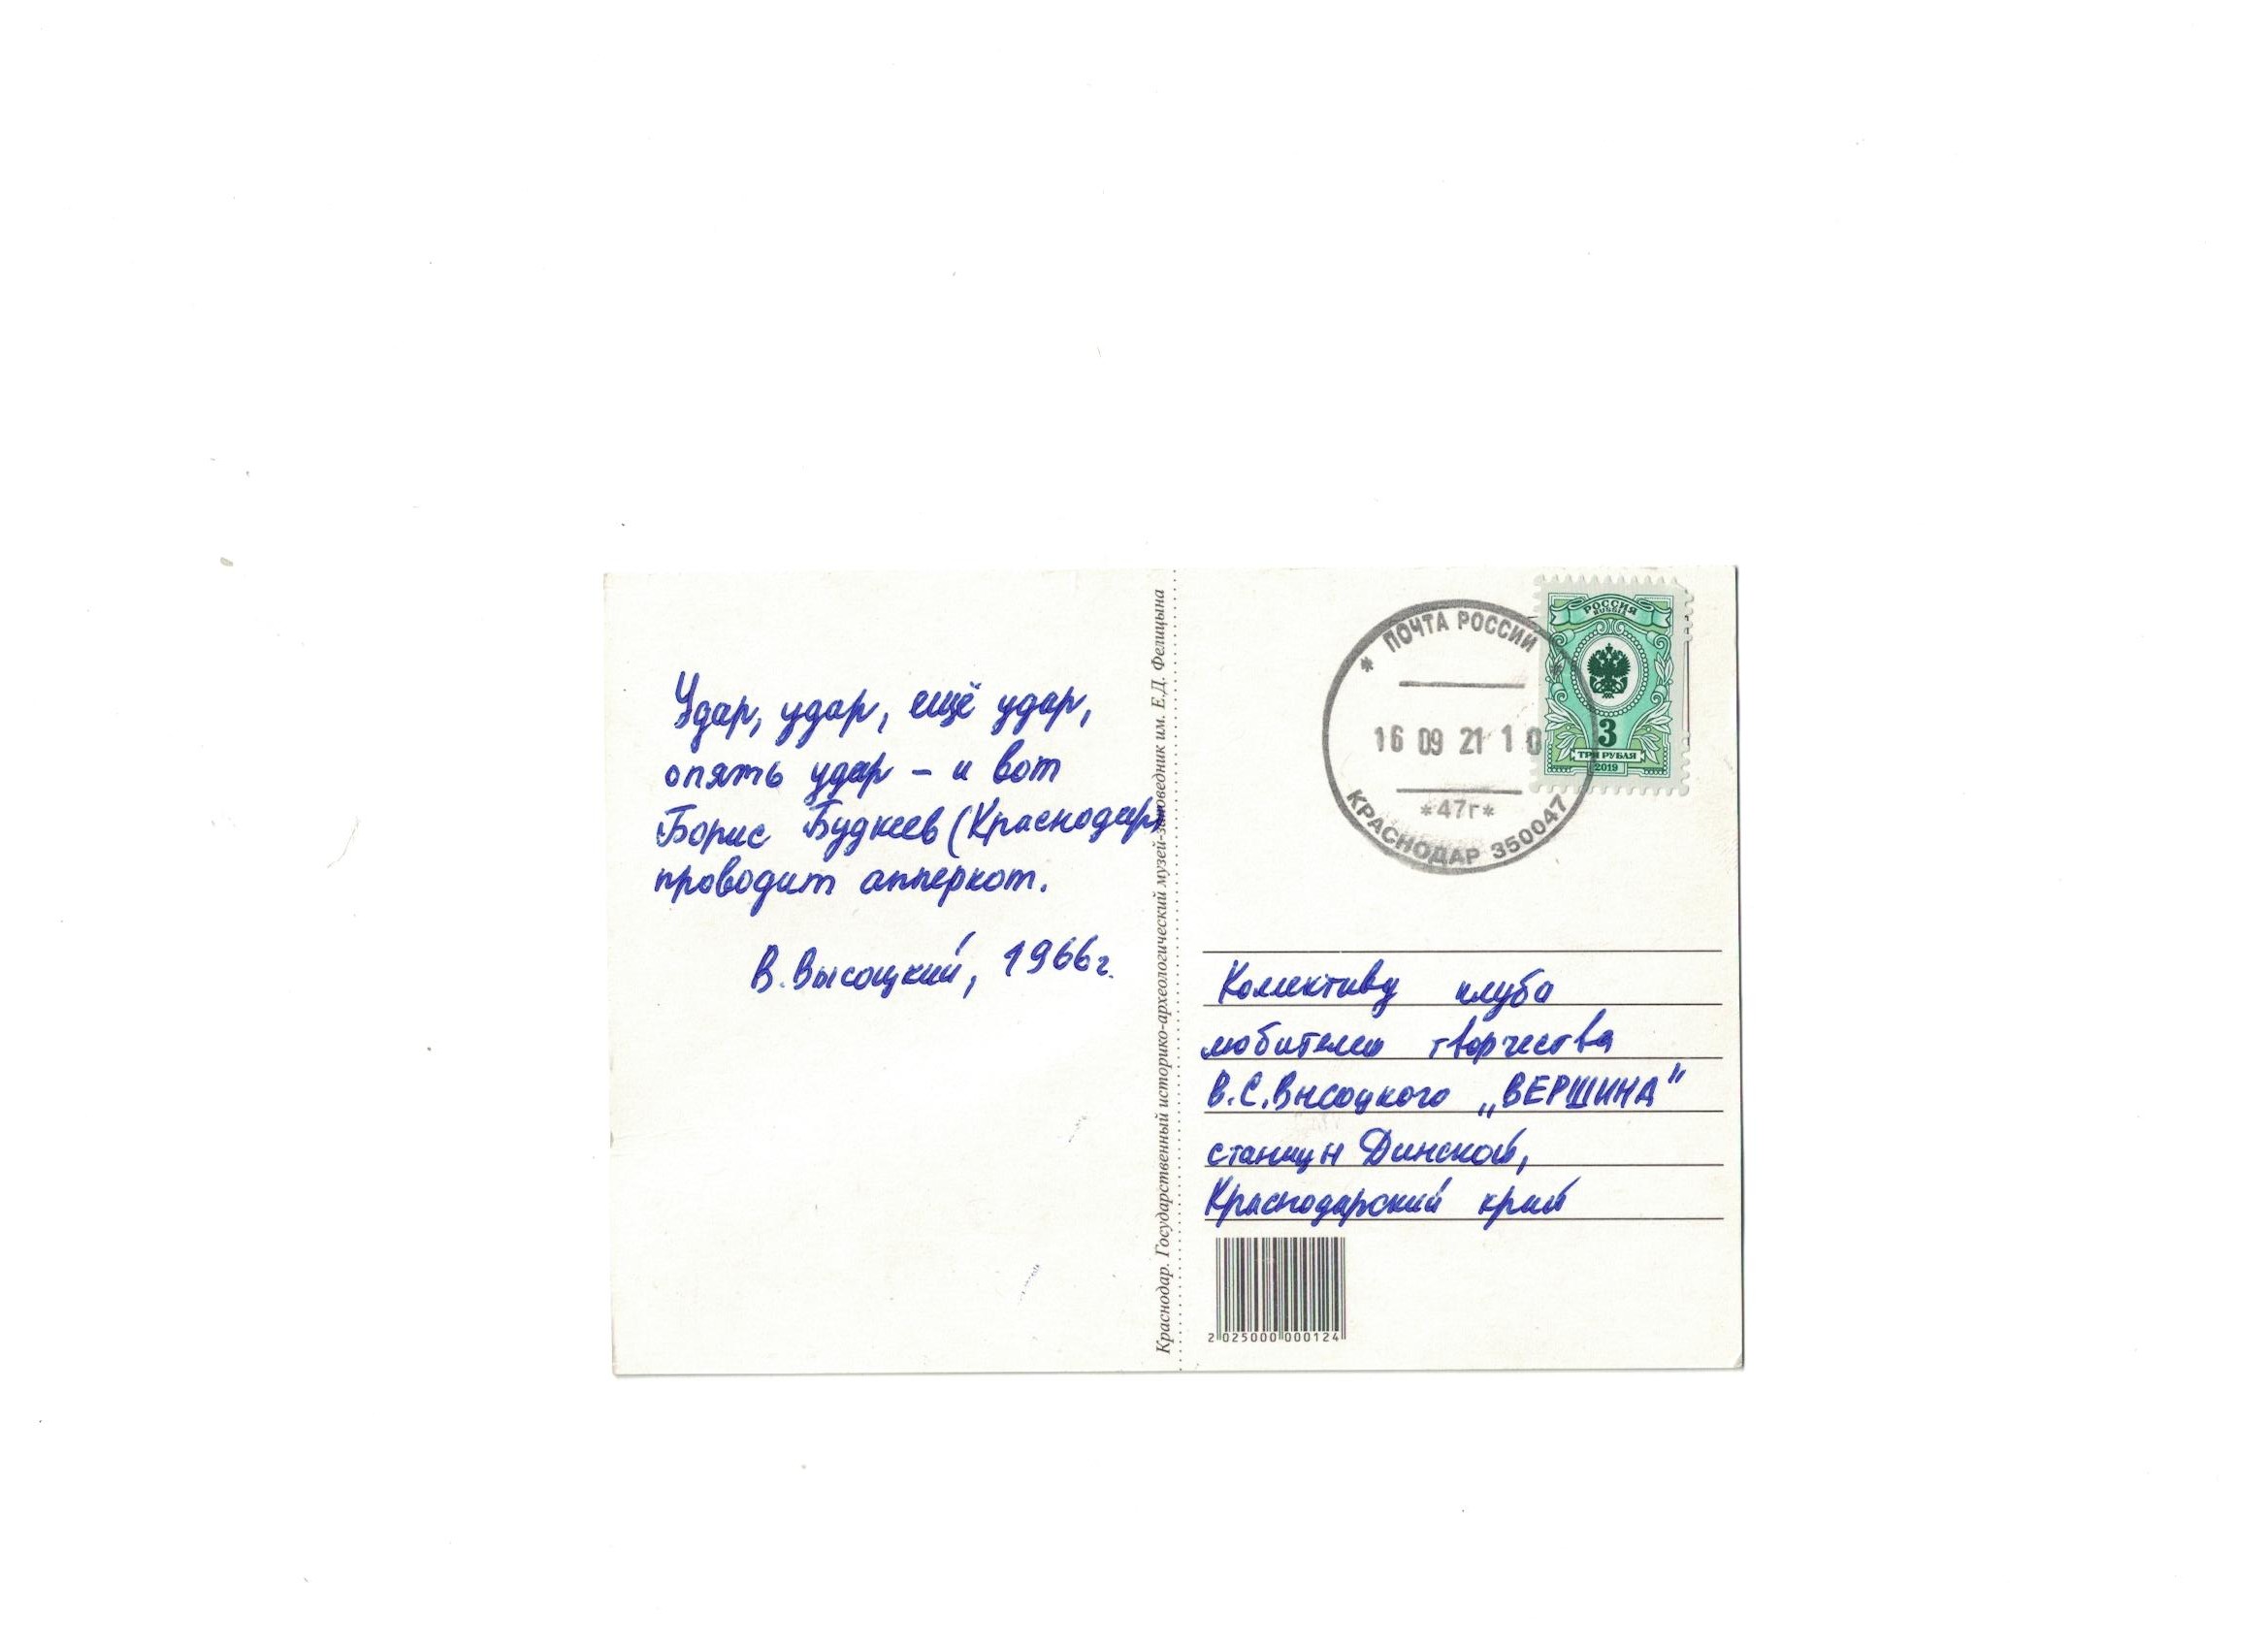 Удар, удар, ещё удар,
опять удар – и вот
Борис Будкеев (Краснодар)
проводит апперкот.
В. Высоцкий, 1966г.
Краснодар. Государственный историко-археологический музей-заповедник им. Е.Д. Фелицына
* ПОЧТА РОССИИ *
16 09 21 10
*47г*
КРАСНОДАР 350047
РОССИЯ
RUSSIA
3
ТРИ РУБЛЯ
2019
Коллективу клуба
любителей творчества
В.С.Высоцкого „ВЕРШИНА"
станицы Динской,
Краснодарский край
2 025000 000124